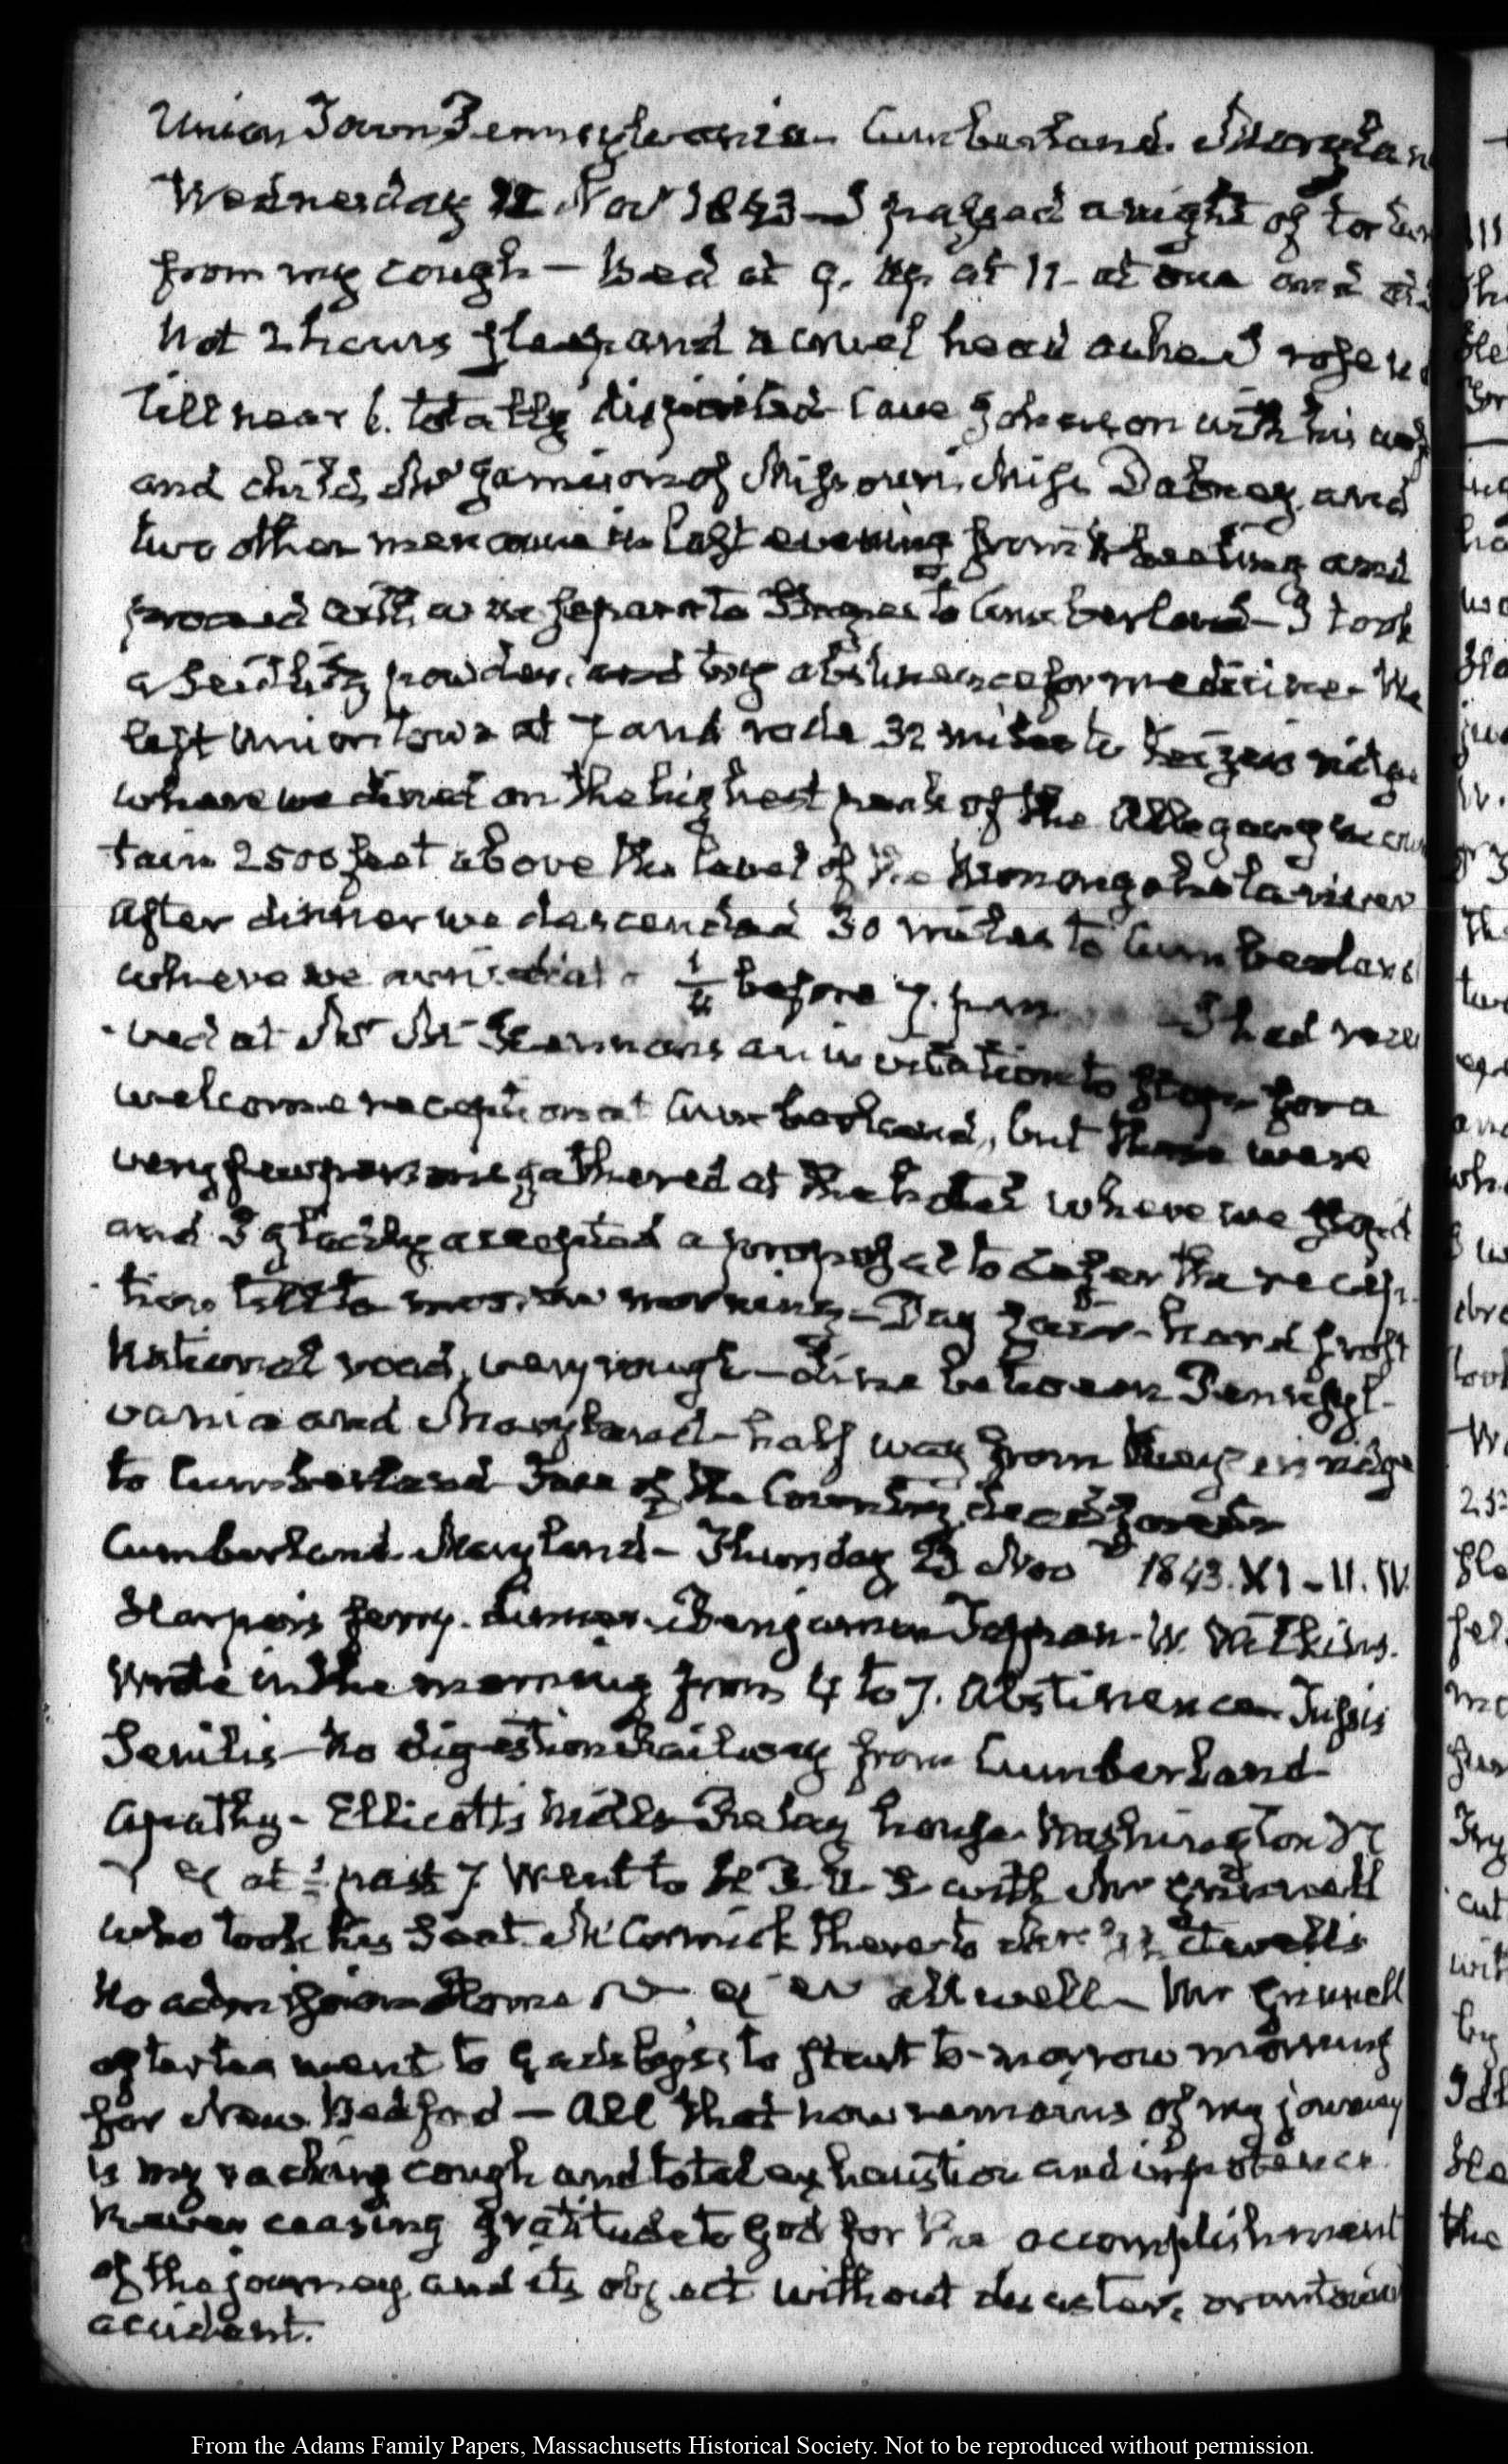 Union Town Pennsylvania. Cumberland. Marylan
Wednesday 22 Nov 1843 — I passed a night of tortur
from my cough — Bed at 9. Up at 11 - at one and at
not 2 hours sleep and a cruel head ache I rose
till near 6. totally dispirited Cave Johnson with his wife
and child, Mr Jamieson of Missouri, Miss Dabney and
two other men came in last evening from Wheeling and
proceed with us in separate Stages to Cumberland — I took
a Seidlitz powder, and try abstinence for medicine. We
left Uniontown at 7 and rode 32 miles to Keizers ridge
where we dined on the highest peak of the Allegany moun
tain 2500 feet above the level of the Monongahela river
After dinner we descended 30 miles to Cumberland
where we arrived at ¼ before 7. p.m. I had recei
ved at Mr McKennans an invitation to stop for a
welcome reception at Cumberland, but there were
very few persons gathered at the hotel where we stop'd
and I gladly accepted a proposal to defer the recep-
tion till to-morrow morning — Day fair — hard frost
National road, very rough — line between Pennsyl-
vania and Maryland — half way from Keyzers ridge
to Cumberland Face of the Country, dead forests
Cumberland. Maryland — Thursday 23 Nov 1843. XI - II. IV.
Harpers ferry. dinner. Benjamin Tappan. W. Wilkins.
Wrote in the morning from 4 to 7. Abstinence. Tussis
Senilis — No digestion Railway from Cumberland
Apathy — Ellicotts Mills Relay house. Washington
at ½ past 7 Went to H. R. U. S. with Mr Grinnell
who took his Seat. McCormick there to
No admission Home all well — Mr Grinnell
after tea went to Gadsby's, to start to-morrow morning
for New Bedford — All that now remains of my journey
is my racking cough and total exhaustion and impotence.
Never ceasing gratitude to God for the accomplishment
of the journey and its object without disaster, or untoward
accident.
From the Adams Family Papers, Massachusetts Historical Society. Not to be reproduced without permission.